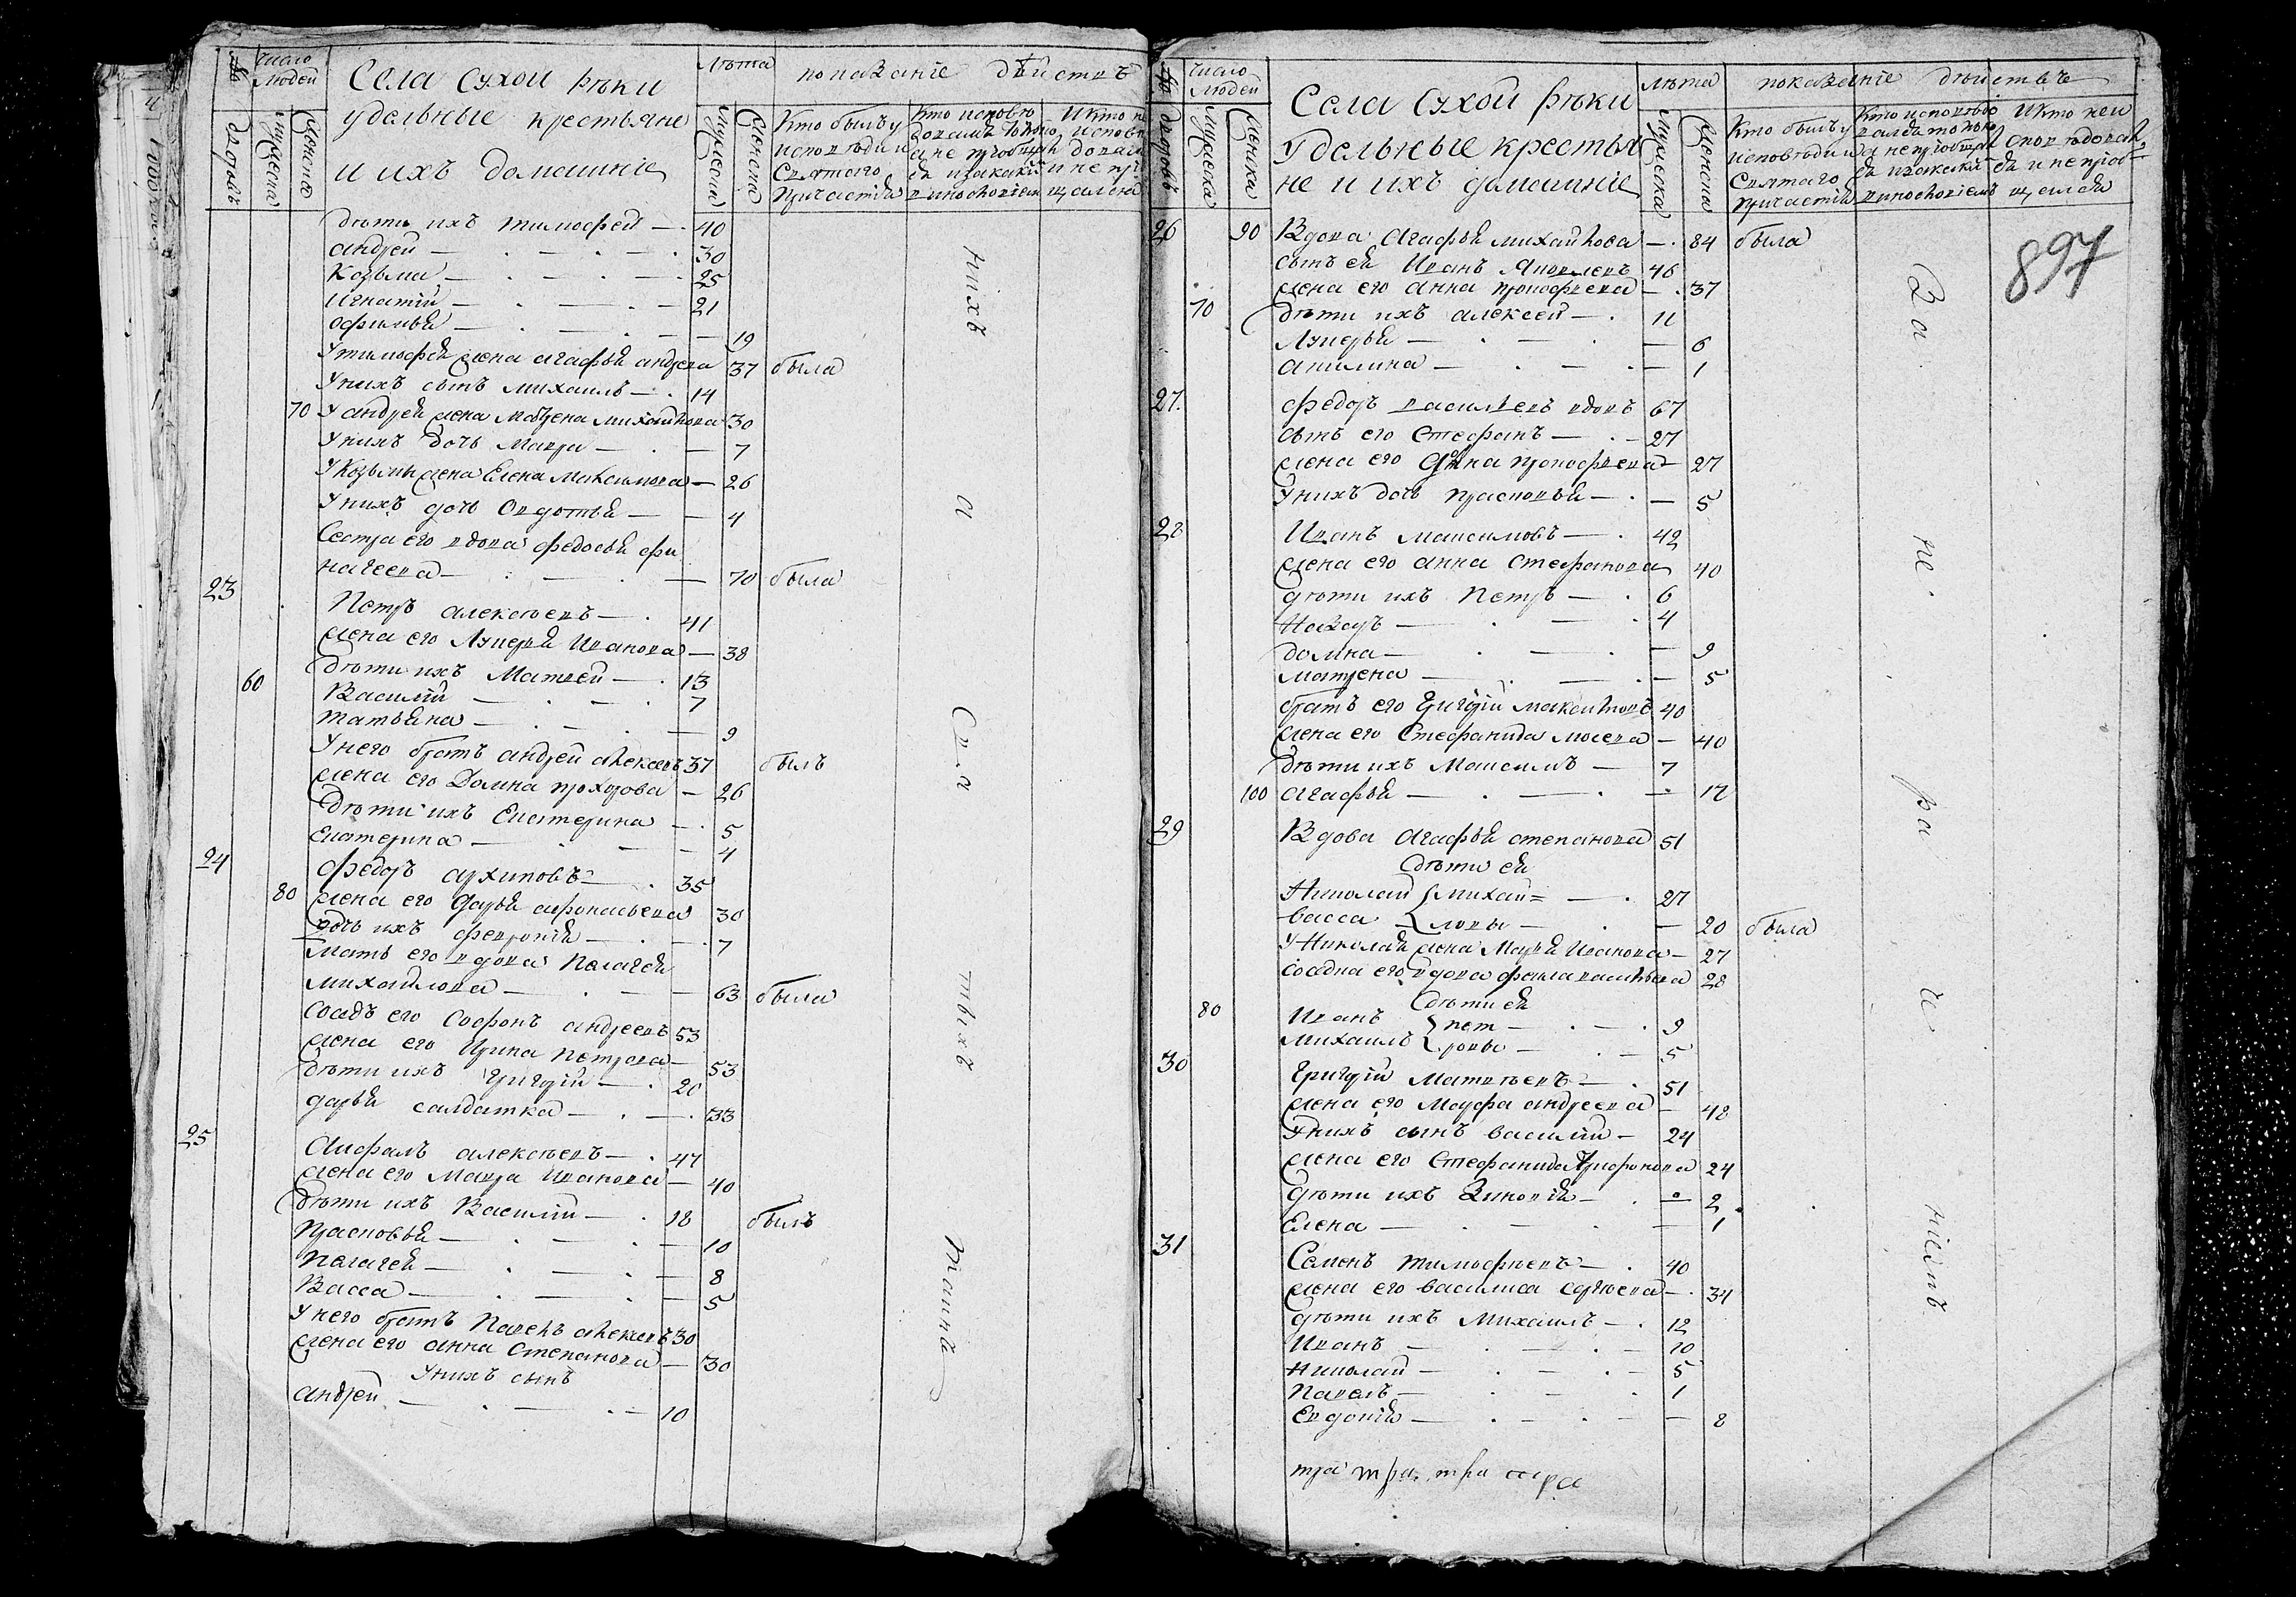 № дворовъ
число людей
мужеска
женска
Села Сухой рѣки
удельные крестьяне
и ихъ домашние
лѣта
мужеска
женска
показание действъ
Кто былъ у
исповѣди и
Святаго
Причастия
дѣти ихъ тимофей — 40
андрей — 30
Козьма — 25
игнатий — 21
офимья — 19
У тимофея жена агафья андреева 37 была
У нихъ сынъ михаилъ — 14
70 У андрея жена матрена михайлова 30
У нихъ дочь Мавра — 7
У Козьмы жена Елена Максимова — 26
У нихъ дочь Овдотья — 4
Сестра его вдова федосья
70 была
23 Петръ алексѣевъ — 41
жена его Лукерья Иванова — 38
60 дѣти ихъ Матвей — 13
Василий — 7
татьяна — 9
У него братъ андрей алексеевъ 37 былъ
жена его Домна прохорова — 26
Дѣти ихъ Екатерина — 5
Екатерина — 4
24 федоръ архиповъ — 35
80 жена его Дарья афонасьева 30
дочь ихъ феврония — 7
Мать его вдова Пелагея
михайлова — 63 была
сосѣдъ его Софонъ андреевъ 53
жена его Ирина петрова — 53
дѣти ихъ Григорий — 20
дарья салдатка — 33
25 алексѣевъ — 47
жена его Мавра Иванова — 40
дѣти ихъ Василий — 18 былъ
Прасковья — 10
Пелагея — 8
Васса — 5
У него братъ Павелъ алексеевъ 30
жена его анна Степанова — 30
У нихъ сынъ
андрей — 10
нихъ
а
Св-я
тыхъ
таинъ
№ дворовъ
число людей
мужеска
женска
Села Сухой рѣки
Удельные крестья
не и ихъ домашние
лѣта
мужеска
женска
показание дѣиствъ
Кто былъ у
исповѣди и
Святаго
причастия
26 90 Вдова Агафья михайлова — 84 была
сынъ ея Иванъ Яковлевъ 46
жена его анна прокофьева — 37
70 Дѣти ихъ алексей — 11
Лукерья — 6
акилина — 1
27. федоръ васильевъ вдовъ 67
сынъ его Стефанъ — 27
жена его анна прокофьева 27
У нихъ дочь прасковья — 5
28 Иванъ максимовъ — 42
жена его анна Стефанова 40
дѣти ихъ Петръ — 6
Назаръ — 4
домна — 9
матрена — 5
братъ его Григорий максимовъ 40
жена его Стефанида мосева — 40
дѣти ихъ Максимъ — 7
100 агафья — 12
29 Вдова Агафья степанова 51
дѣти ея
Николай { михаи= — 27
васса { ловы — 20 была
У Николая жена Марья Иванова — 27
соседка его вдова фекла васильева 28
дѣти ея
80 Иванъ { пет — 9
михаилъ { ровы — 5
30 Григорий Матвѣевъ — 51
жена его Марфа андреева — 48
У нихъ сынъ василий — 24
жена его Стефанида Трифонова 24
дѣти ихъ Зиновия — 2
Елена — 1
31 Семенъ тимофѣевъ — 40
жена его василиса сергѣева — 34
дѣти ихъ Михаилъ — 12
Иванъ — 10
Николай — 5
Павелъ — 1
Евдокия — 8
За
не
ра
че
ниемъ
897